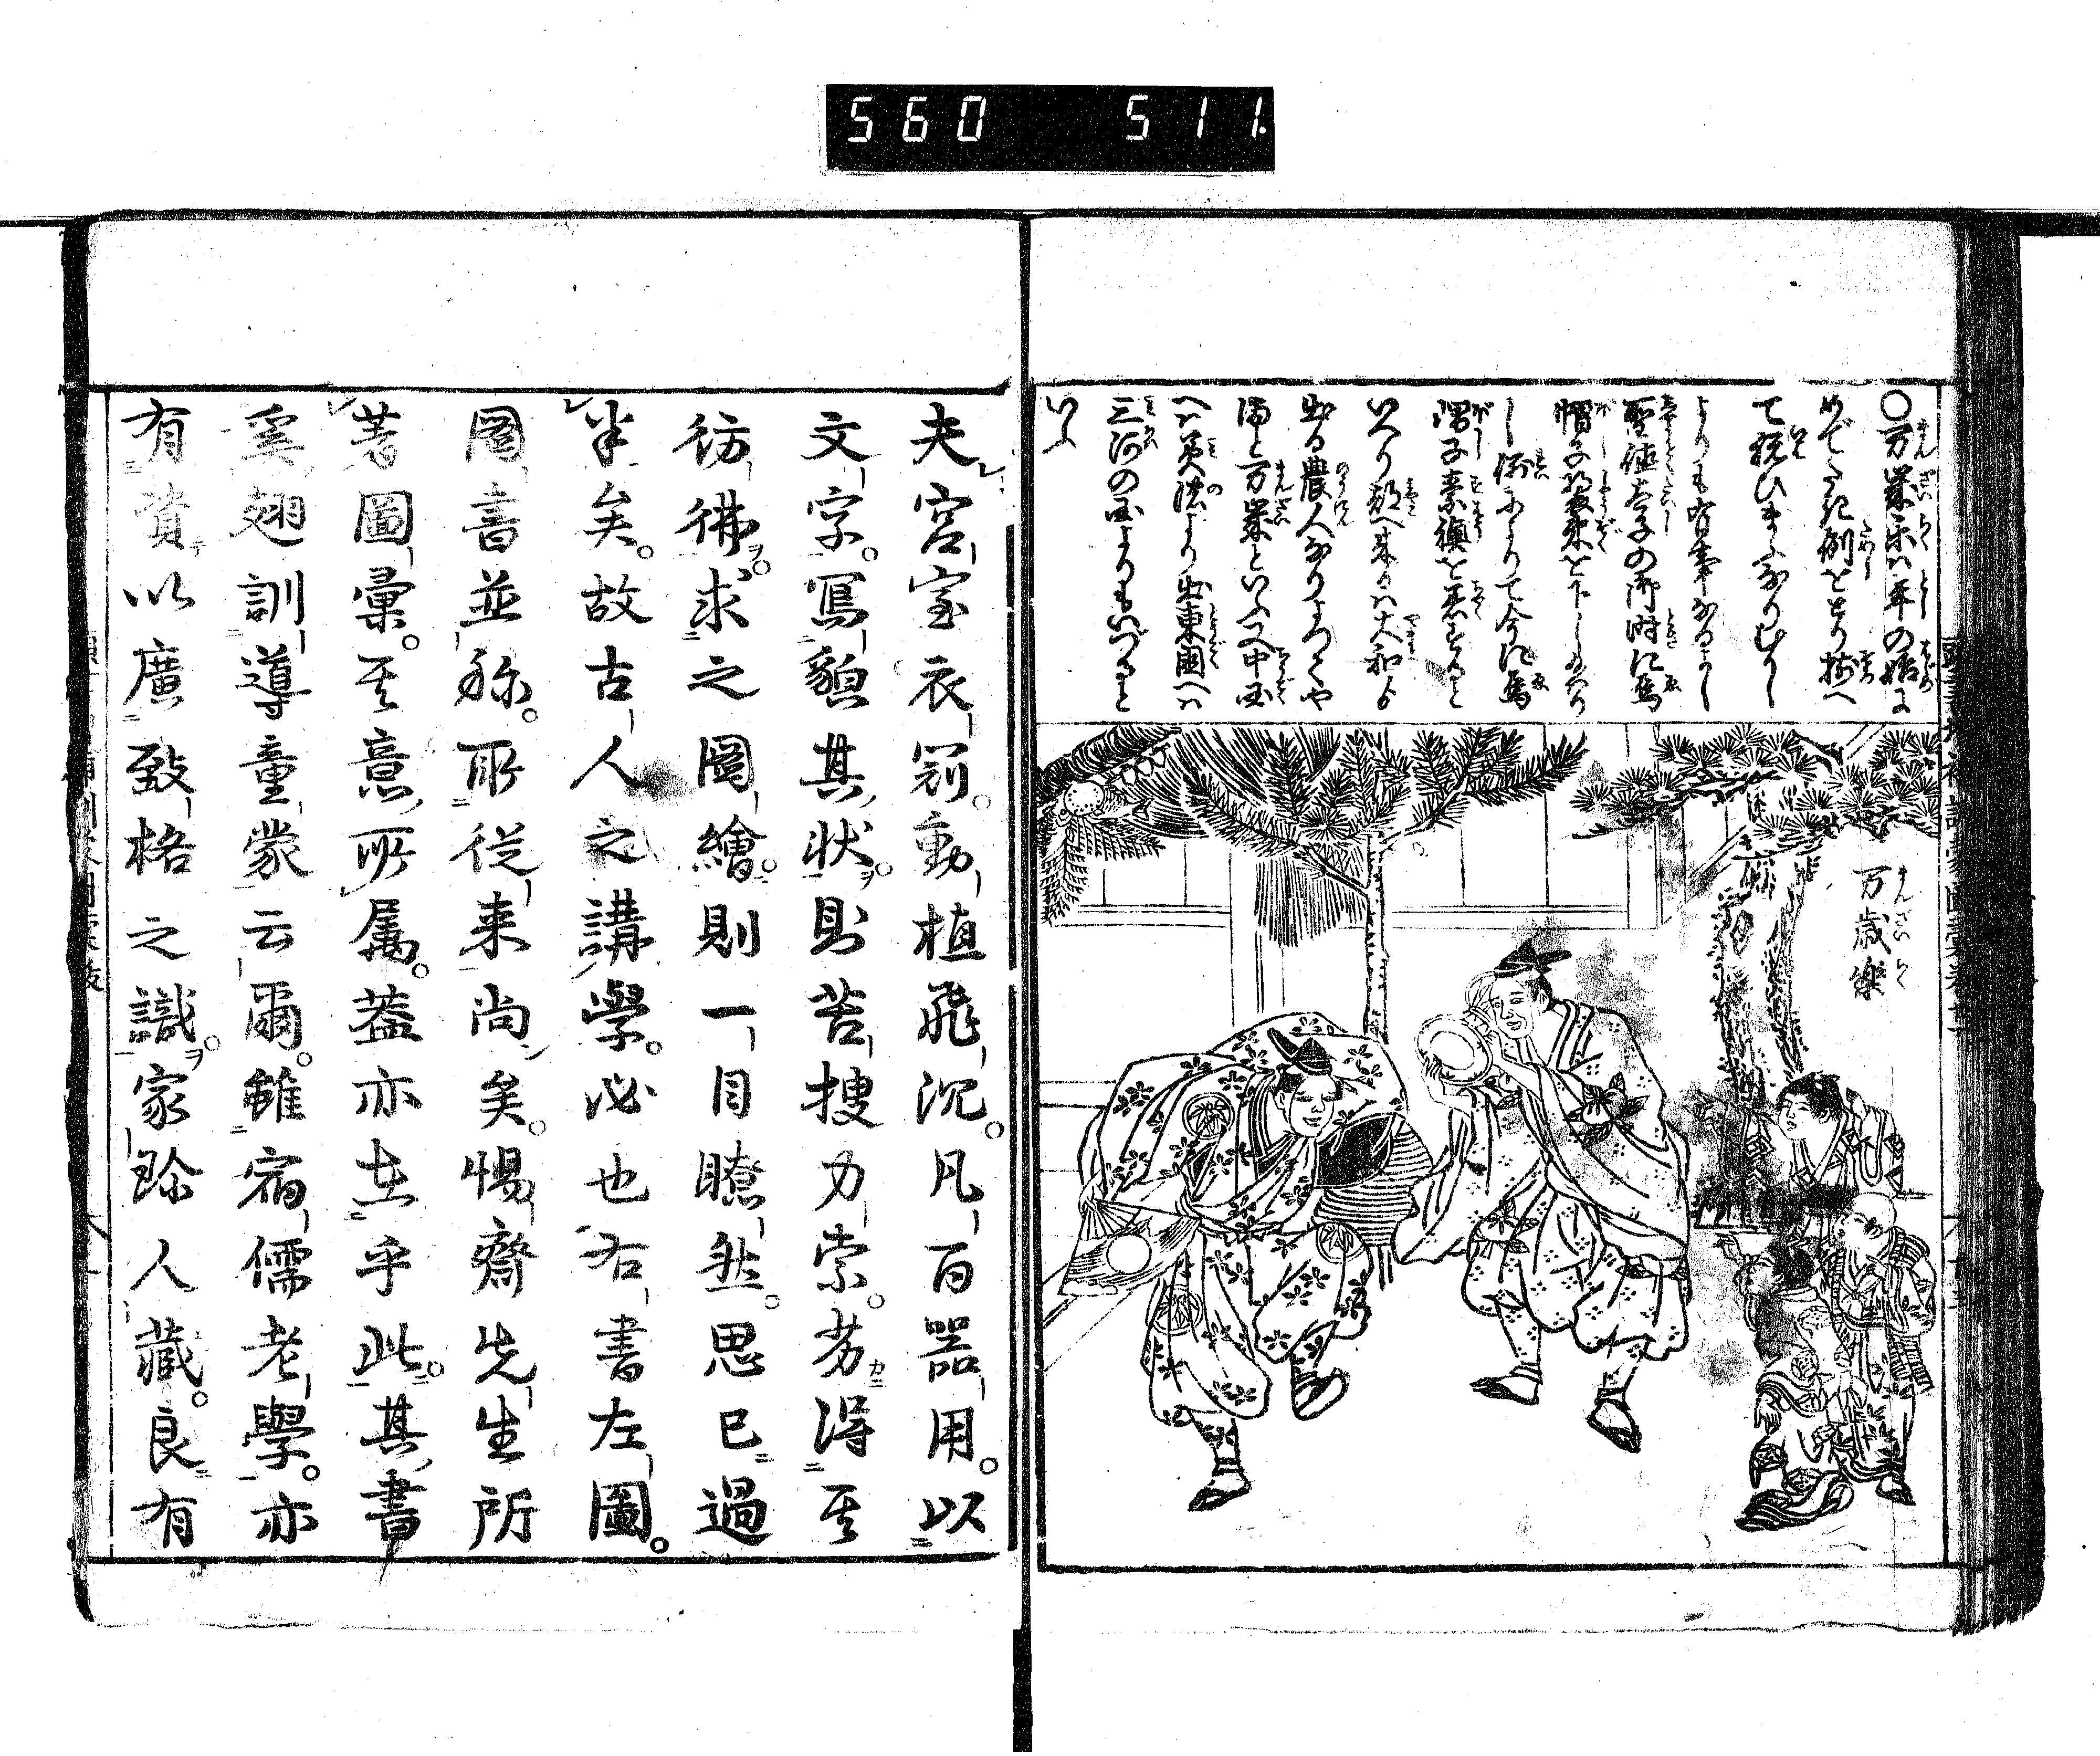 560 511
○万歳楽ハ年の始に
めでたき例をとり拵へ
て祝ひまふなりむかし
よりも有事なるよし
聖徳太子の御時に烏
帽子
し例によりて今に烏
帽子素襖を着すると
いへり都へ来るハ大和より
出る農人なり
万歳といふ又中国
へハ美濃より出東国へハ
三河の国よりもいづると
いふ
万歳楽
まんざいらく
夫宮室衣冠。動植飛沉。凡百器用。以
文字。寫貌其状。則苦搜力索。芴得其
彷彿。求之圖繪。則一目瞭然。思已過
半矣。故古人之講學。必也右書左圖。
圖書並称。所從来尚矣。惕齋先生所
著圖彙。其意所属。蓋亦在乎此。其書
奚翅訓導童蒙云爾。雖宿儒老學。亦
有資以廣致格之識。家珍人藏。良有